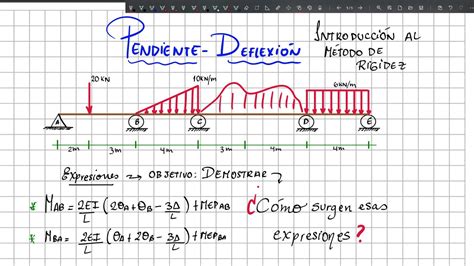 PENDIENTE-DEFLEXIÓN
INTRODUCCIÓN AL
MÉTODO DE
RIGIDEZ
20KN
10KN/m
6KN/m
A B C D E
2m 3m 4m 4m 4m
Expresiones → OBJETIVO: DEMOSTRAR
* MAB = 2EI/L (2θA + θB - 3Δ/L) + MEPAB
* MBA = 2EI/L (θA + 2θB - 3Δ/L) + MEPBA
¿Cómo surgen esas
expresiones?